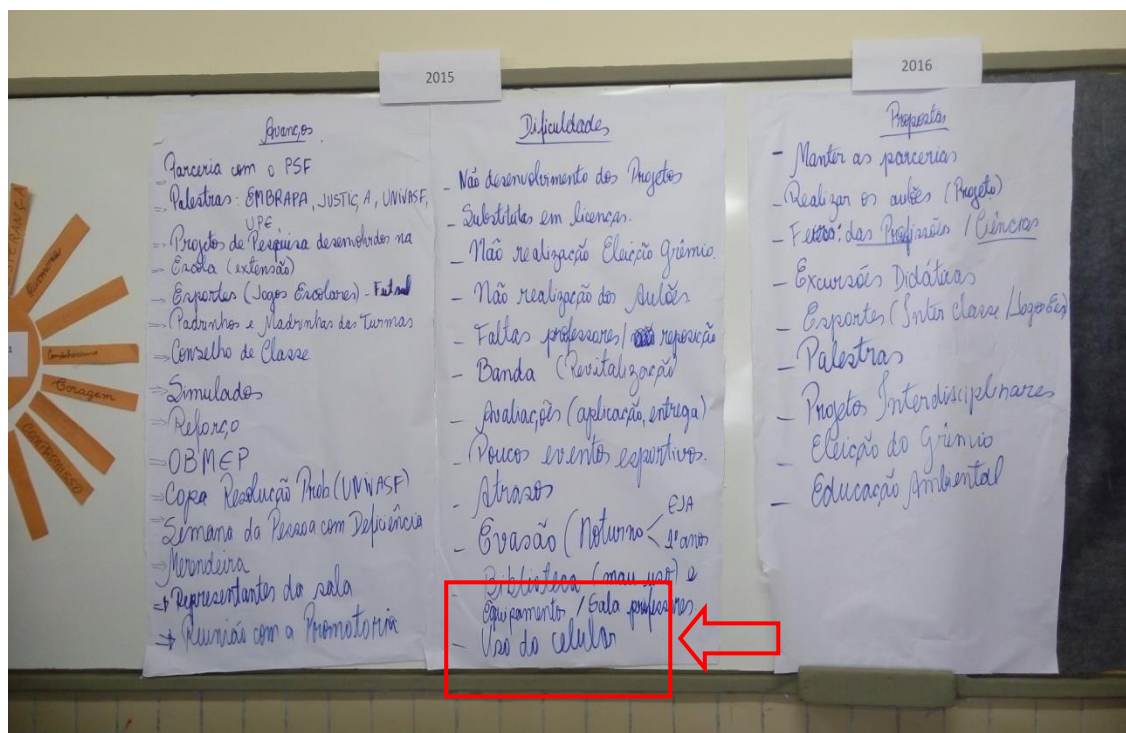 2015
2016
Avanços
Parceria com o PSF
Palestras: EMBRAPA, JUSTIÇA, UNIVASF,
UPE
Projetos de Pesquisa desenvolvidos na
Escola (extensão)
Esportes (Jogos Escolares) - Futsal
Padrinhos e Madrinhas das Turmas
Conselho de Classe
Simulados
Reforço
OBMEP
Copa Resolução Prob (UNIVASF)
Semana da Pessoa com Deficiência
Merendeira
Representantes da sala
Reunião com a Promotoria
Dificuldades
- Não desenvolvimento dos Projetos
- Substitutas em licenças.
- Não realização Eleição Grêmio.
- Não realização dos Aulões
- Faltas professores / reposição
- Banda (Revitalização
- Avaliações (aplicação, entrega)
- Poucos eventos esportivos.
- Atrasos
- Evasão (Noturno < EJA
1º anos
- Biblioteca (mau uso) e
Equipamento / Sala professores
- Uso do celular
Propostas
- Manter as parcerias
- Realizar os aulões (Projeto)
- Feira: das Profissões / Ciências
- Excursões Didáticas
- Esportes (Inter classe / Jogos Esc)
- Palestras
- Projetos Interdisciplinares
- Eleição do Grêmio
- Educação Ambiental
Coragem
COMPROMISSO